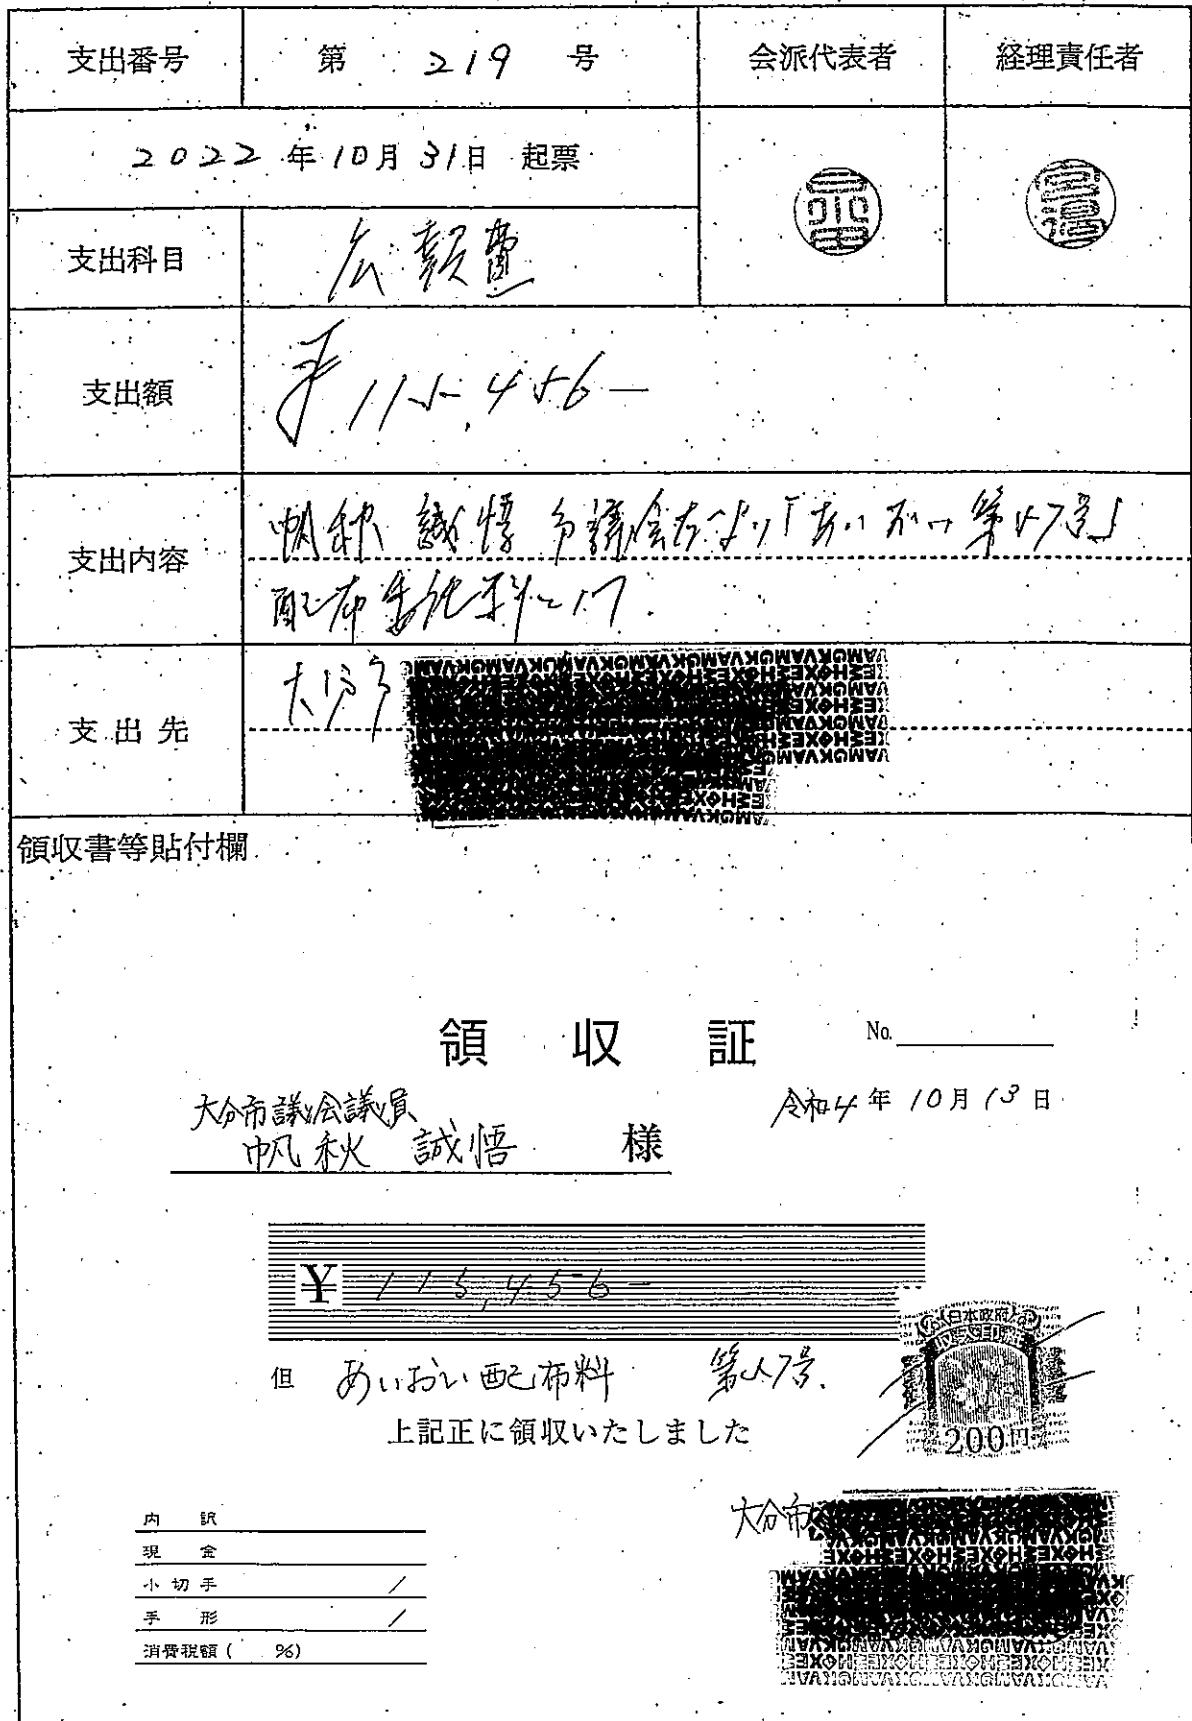 支出番号 第 219 号 会派代表者 経理責任者
2022年10月31日 起票
支出科目 広報費
支出額 ¥115,456-
支出内容 帆秋 誠悟 市議会だより「あいおい 第57号」
配布委託料として.
支出先 大分市
領収書等貼付欄
領収証 No.
令和4年10月13日
大分市議会議員
帆秋 誠悟 様
¥115,456-
日本政府
収入印紙
但 あいおい配布料 第57号.
200円
上記正に領収いたしました
大分市
内訳
現金
小切手 /
手形 /
消費税額( %)